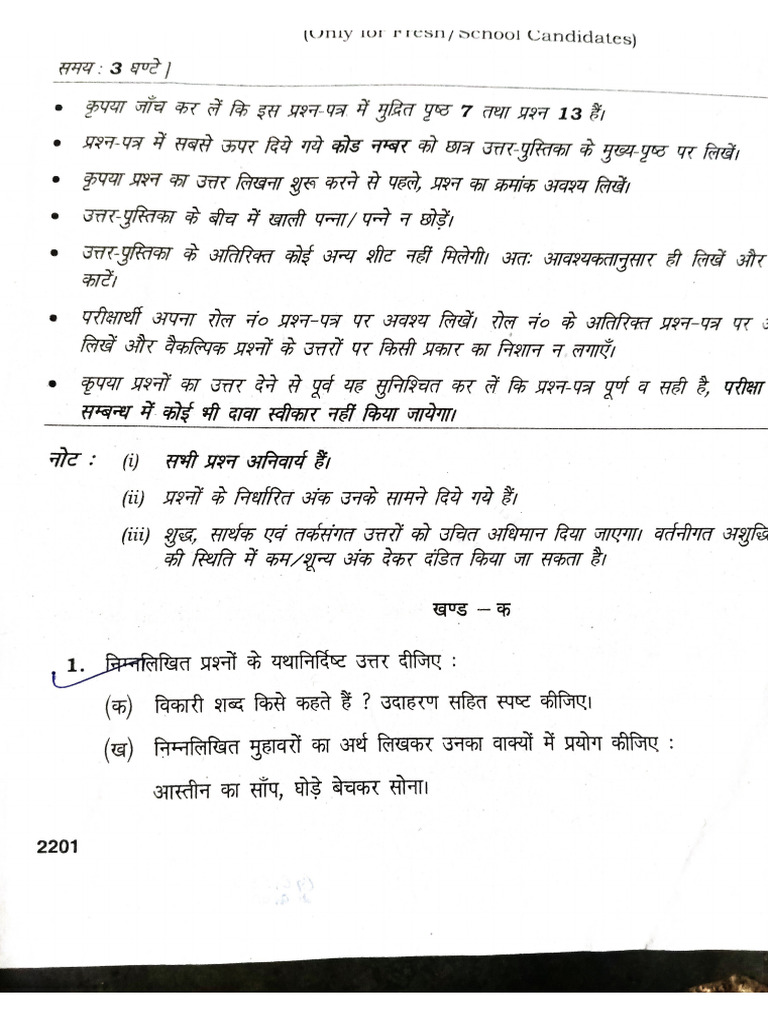 (Only for Fresh/School Candidates)
समय : 3 घण्टे]
• कृपया जाँच कर लें कि इस प्रश्न-पत्र में मुद्रित पृष्ठ 7 तथा प्रश्न 13 हैं।
• प्रश्न-पत्र में सबसे ऊपर दिये गये कोड नम्बर को छात्र उत्तर-पुस्तिका के मुख्य-पृष्ठ पर लिखें।
• कृपया प्रश्न का उत्तर लिखना शुरू करने से पहले, प्रश्न का क्रमांक अवश्य लिखें।
• उत्तर-पुस्तिका के बीच में खाली पन्ना/ पन्ने न छोड़ें।
• उत्तर-पुस्तिका के अतिरिक्त कोई अन्य शीट नहीं मिलेगी। अतः आवश्यकतानुसार ही लिखें और
काटें।
• परीक्षार्थी अपना रोल नं० प्रश्न-पत्र पर अवश्य लिखें। रोल नं० के अतिरिक्त प्रश्न-पत्र पर
लिखें और वैकल्पिक प्रश्नों के उत्तरों पर किसी प्रकार का निशान न लगाएँ।
• कृपया प्रश्नों का उत्तर देने से पूर्व यह सुनिश्चित कर लें कि प्रश्न-पत्र पूर्ण व सही है, परीक्षा
सम्बन्ध में कोई भी दावा स्वीकार नहीं किया जायेगा।
नोट : (i) सभी प्रश्न अनिवार्य हैं।
(ii) प्रश्नों के निर्धारित अंक उनके सामने दिये गये हैं।
(iii) शुद्ध, सार्थक एवं तर्कसंगत उत्तरों को उचित अधिमान दिया जाएगा। वर्तनीगत अशुद्धि
की स्थिति में कम/शून्य अंक देकर दंडित किया जा सकता है।
खण्ड – क
1. निम्नलिखित प्रश्नों के यथानिर्दिष्ट उत्तर दीजिए :
(क) विकारी शब्द किसे कहते हैं ? उदाहरण सहित स्पष्ट कीजिए।
(ख) निम्नलिखित मुहावरों का अर्थ लिखकर उनका वाक्यों में प्रयोग कीजिए :
आस्तीन का साँप, घोड़े बेचकर सोना।
2201